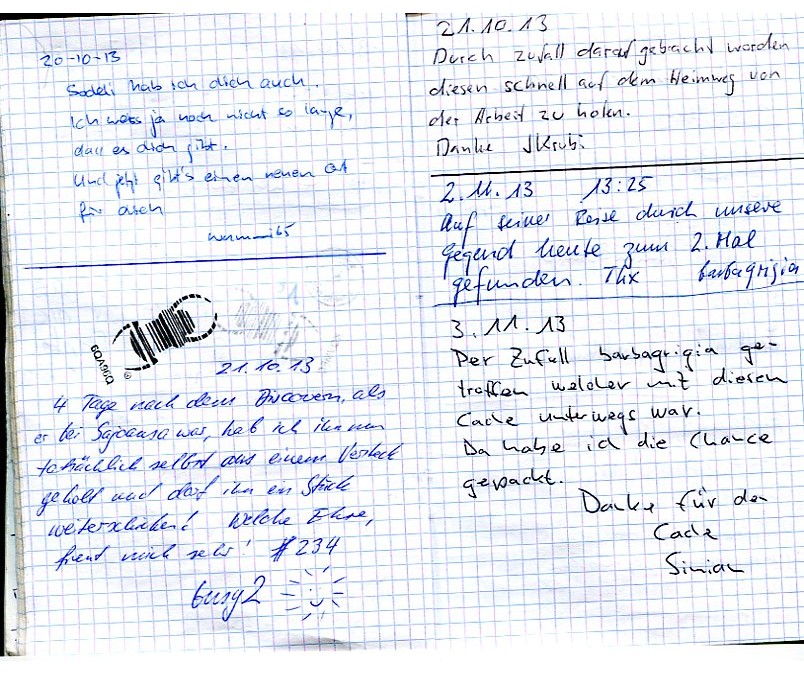 20-10-13
Sodeli hab ich dich auch.
Ich weiss ja noch nicht so lange,
dass es dich gibt.
Und jetzt gibt's einen neuen Ort
für dich
21.10.13
4 Tage nach dem Discovern, als
er bei Sajoausa war, hab ich ihn nun
tatsächlich selbst aus einem Versteck
geholt und darf ihn ein Stück
weiterschicken! Welche Ehre,
freut mich sehr! #234
busy2
21.10.13
Durch zufall darauf gebracht worden
diesen schnell auf dem Heimweg von
der Arbeit zu holen.
Danke JKrubi
2.11.13 13:25
Auf seiner Reise durch unsere
Gegend heute zum 2. Mal
gefunden. Thx barbagrigia
3.11.13
Per Zufall barbagrigia ge-
troffen welcher mit diesem
Cache unterwegs war.
Da habe ich die Chance
gepackt.
Danke für den
Cache